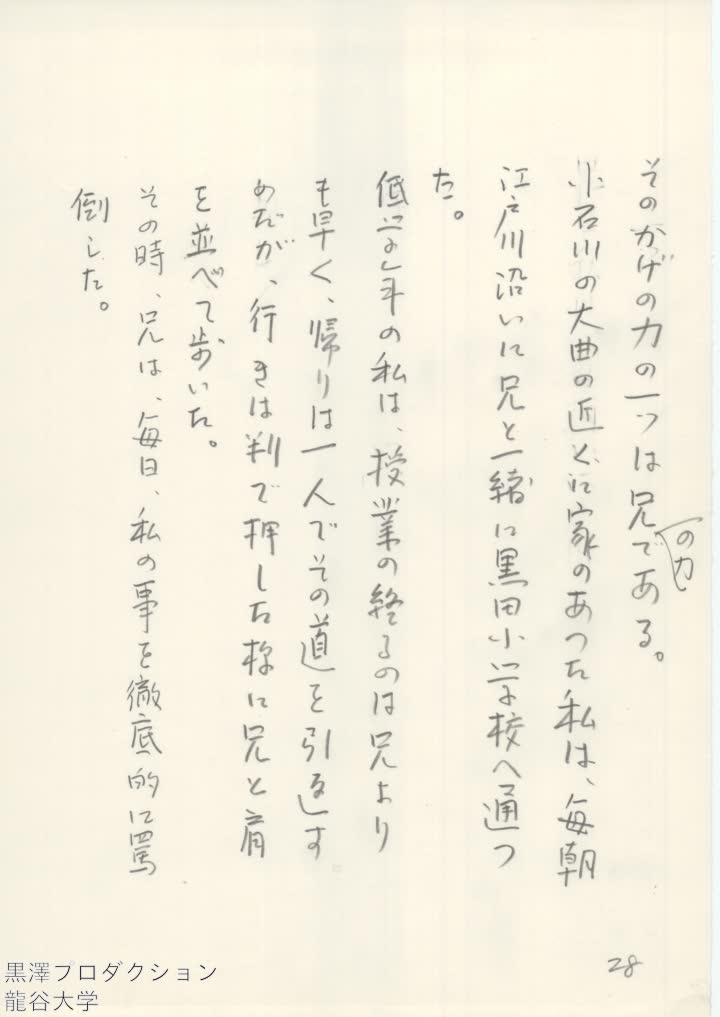 そのかげの力の一つは兄である。
の力
小石川の大曲の近くに家のあった私は、毎朝
江戸川沿いに兄と一緒に黒田小学校へ通つ
た。
低学年の私は、授業の終るのは兄より
も早く、帰りは一人でその道を引返す
のだが、行きは判で押した様に兄と肩
を並べて歩いた。
その時、兄は、毎日、私の事を徹底的に罵
倒した。
28
黒澤プロダクション
龍谷大学